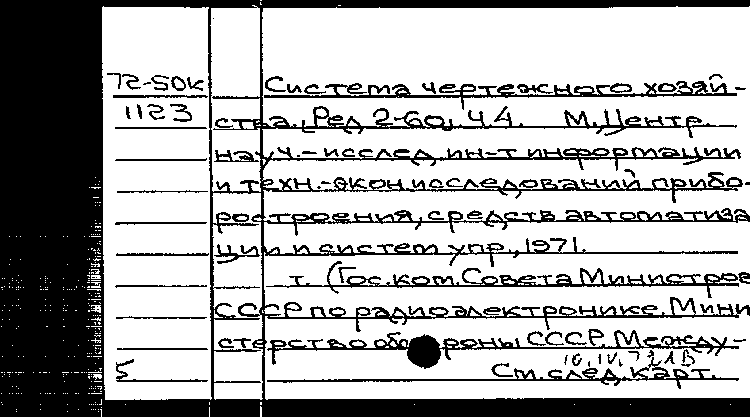 72-50к Система чертежного хозяй-
1123 ства. [Ред. 2-бо], Ч. 4. М., Центр.
науч.-исслед. ин-т информации
и техн.-экон. исследований прибо-
ростроения, средств автоматиза
ции и систем упр., 1971.
т. (Гос. ком. Совета Министров
СССР по радиоэлектронике. Мини
стерство обо роны СССР. Между-
10.IV.72
5 См. след. карт.